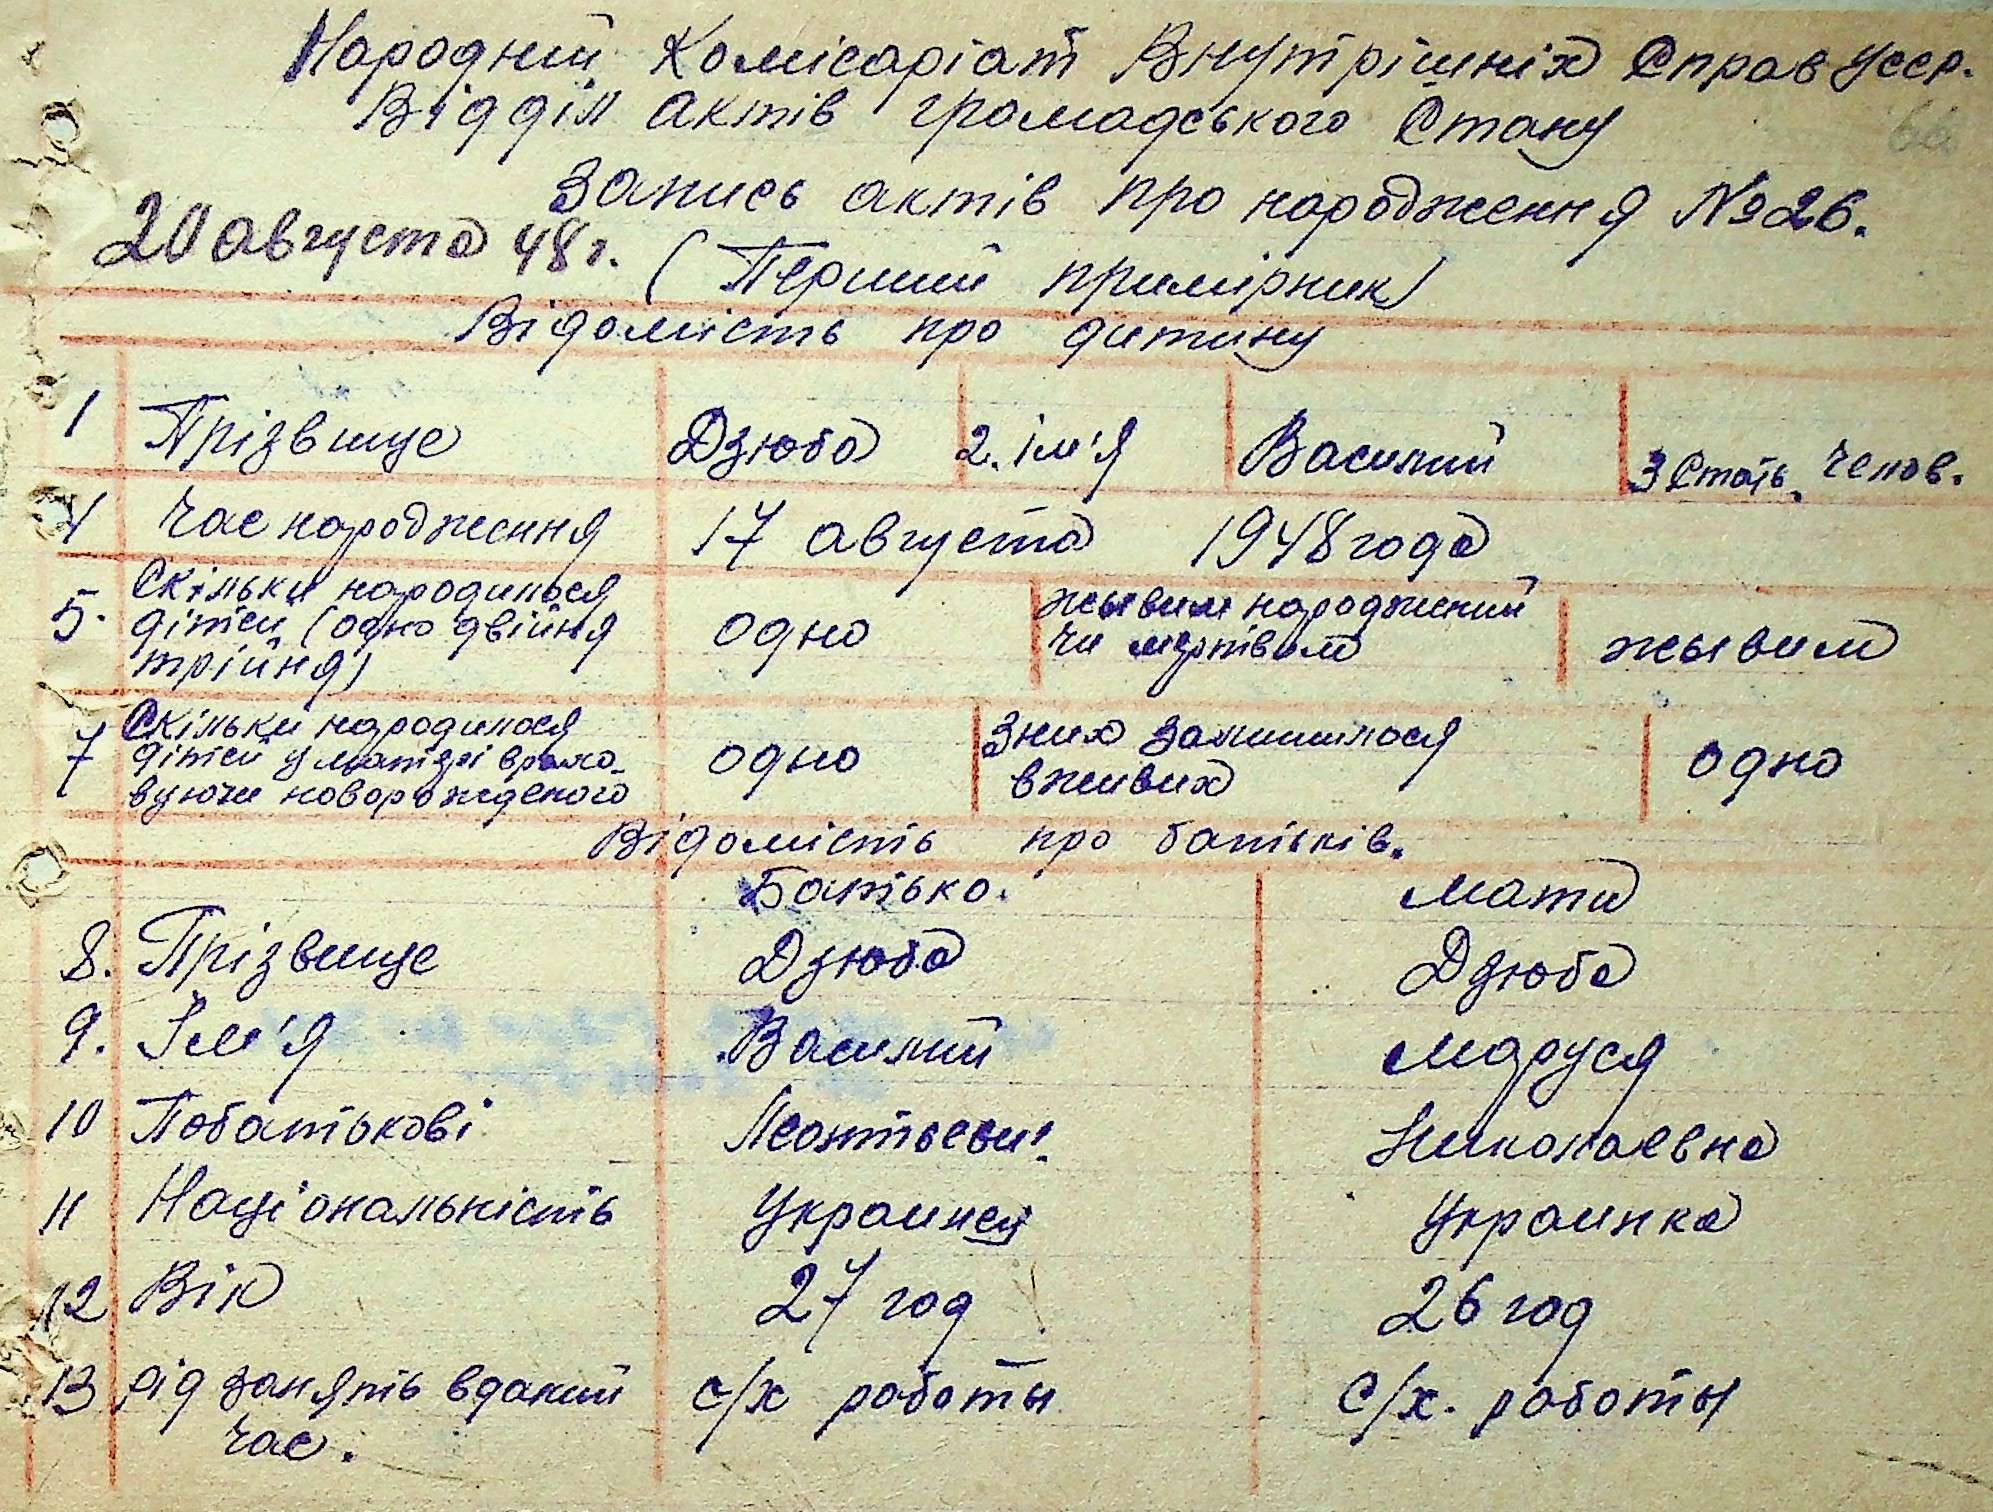 Народний Комісаріат Внутрішніх Справ УССР.
Відділ актів громадського Стану
Запись актів про народження №26.
20 августа 48 г.
(Перший примірник)
Відомість про дитину
1 Прізвище Дзюба 2. ім'я Василий 3 Стать. Челов.
4 Час народження 17 августа 1948 года
5. Скільки народилься дітей (одно двійня трійня) одно жывим народжений чи мертвим жывим
7 Скільки народилося дітей у матері врахо-вуючи новорожденого одно Зних залишилося вживих одно
Відомість про батьків.
Батько. мати
8. Прізвище Дзюба Дзюба
9. Ім'я Василий Маруся
10 Побатькові Леонтьевич. Николаевна
11 Національність Украинец Украинка
12 Вік 27 год 26 год
13 рід занять вданий час. с/х работы с/х. работы